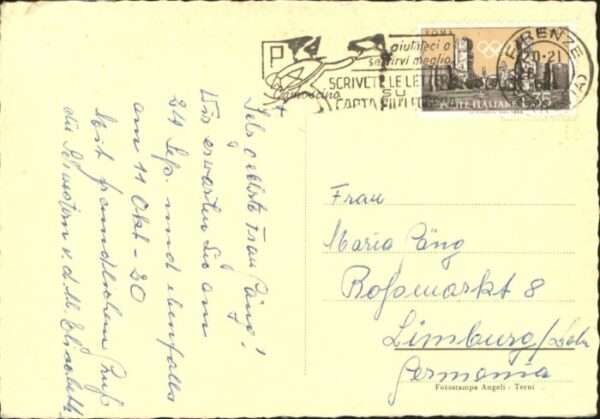 aiutateci a
servirvi meglio
SCRIVETE LE LETTERE
SU
CARTA
FIRENZE
20-21
POSTE ITALIANE
Sehr geehrte Frau Päng!
Wir erwarten Sie am
24 Sep. und ebenfalls
am 11 Okt - 20
Mit freundlichem Gruß
die Schwestern v. d. hl. Elisabeth
Frau
Maria Päng
Roßmarkt 8
Limburg/Lah
Germania
Fotostampa Angeli - Terni